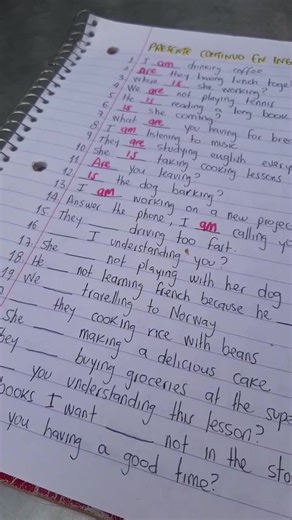 PRESENTE CONTINUO EN ING
1. I am drinking coffee
2. Are they having lunch toge
3. Where is she working?
4. We are not playing tennis
5. He is reading a long book
6. Is she coming?
7. What are you having for brea
8. I am listening to music
9. They are studying english every
10. She is taking cooking lessons
11. Are you leaving?
12. Is the dog barking?
13. I am working on a new projec
14. Answer the phone, I am calling yo
15. They ____ driving too fast.
16. ____ I understanding you?
17. She ____ not playing with her dog
18. He ____ not learning french because he ____
19. We ____ travelling to Norway
____ they cooking rice with beans
She ____ making a delicious cake
hey ____ buying groceries at the supe
____ you understanding this lesson?
books I want ____ not in the sto
you having a good time?